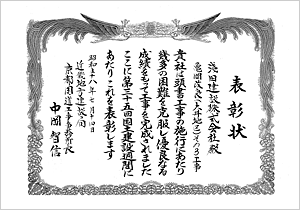 表彰状
浅田建設株式会社殿
亀岡改良(大井地区)その3工事
貴社は頭書工事の施行にあたり
幾多の困難を克服し優良なる
成績をもって工事を完成されました
ここに第三十五回国土建設週間に
あたりこれを表彰します
昭和五十八年七月十四日
近畿地方建設局
京都国道工事事務所長
中岡智信